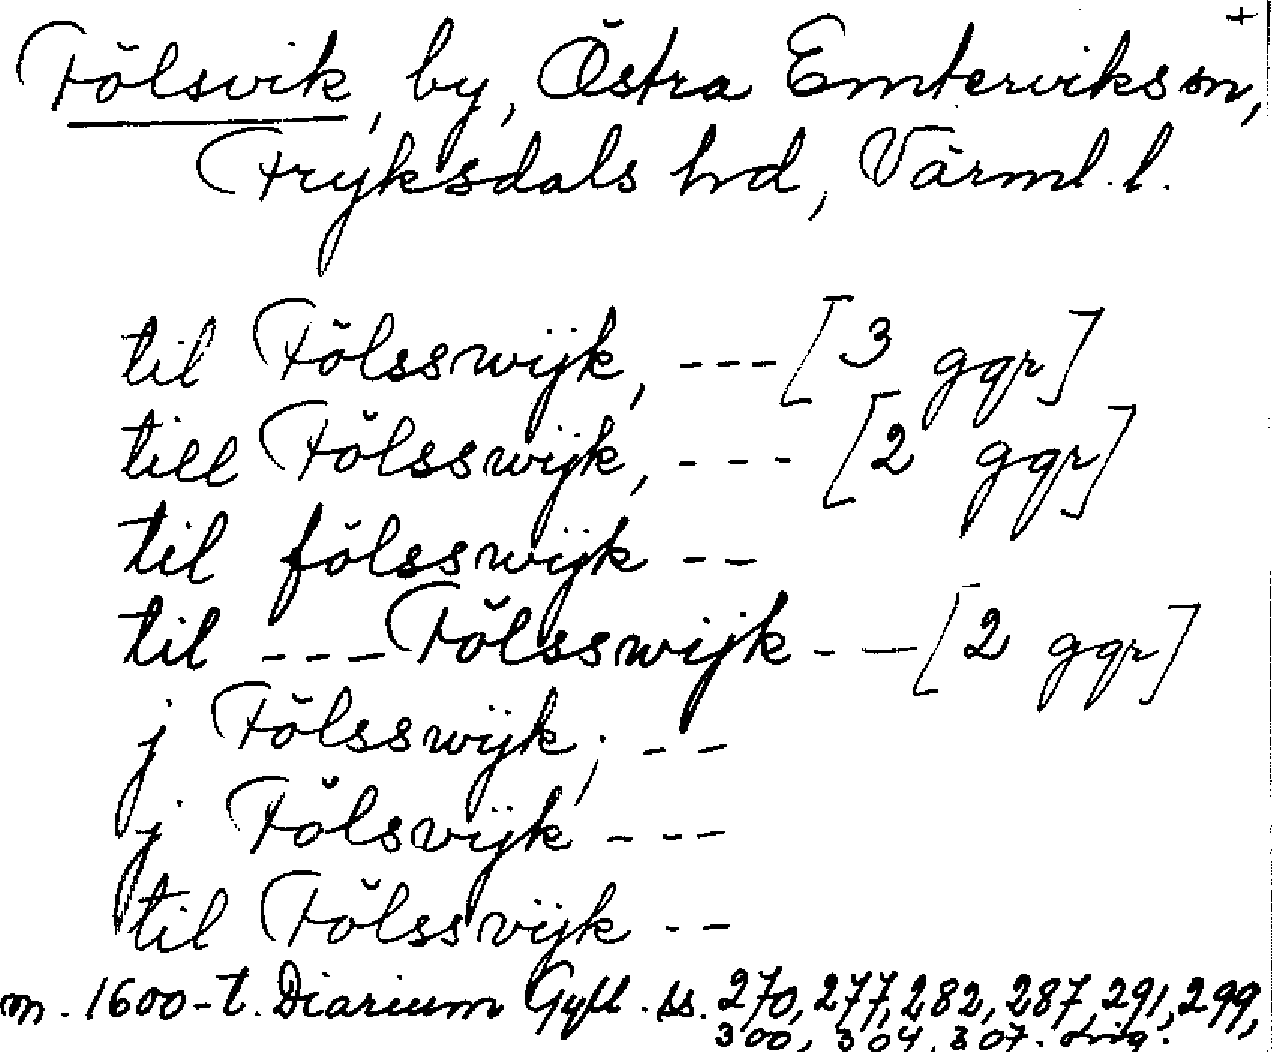 +
Fölsvik, by, Östra Emterviks sn,
Fryksdals hd, Värml. l.
til Fölsswijk, --- [3 ggr]
till Fölsswijk, --- [2 ggr]
til fölsswijk --
til --- Fölsswijk -- [2 ggr]
j Fölsswijk; --
j Fölsvijk ---
til Fölssvijk --
m. 1600-t. Diarium Gyll. ss. 270, 277, 282, 287, 291, 299,
300, 304, 307. orig.